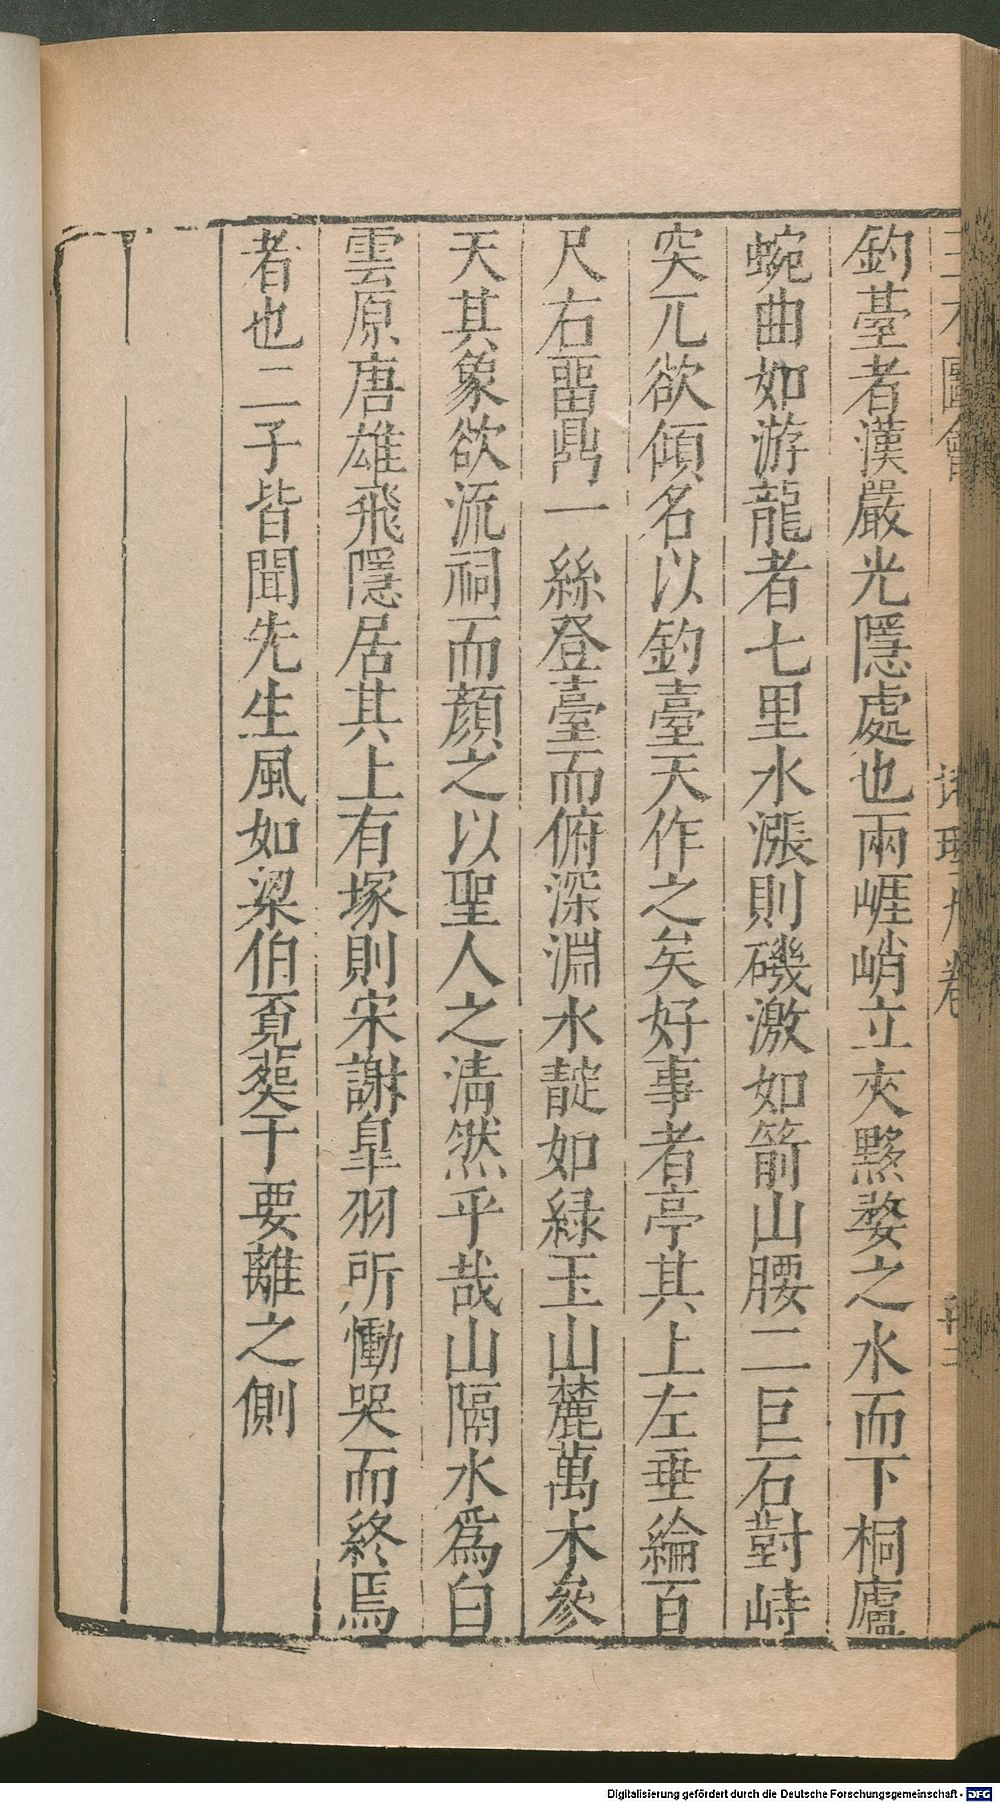 三才圖會
地理九卷
釣臺者漢嚴光隱處也兩崕峭立夾黟婺之水而下桐廬
蜿曲如游龍者七里水漲則磯激如箭山腰二巨石對峙
突兀欲傾名以釣臺天作之矣好事者亭其上左垂綸百
尺右畱鼎一絲登臺而俯深淵水靛如緑玉山麓萬木參
天其象欲流祠而顏之以聖人之淸然乎哉山隔水爲白
雲原唐雄飛隱居其上有塚則宋謝臯羽所慟哭而終焉
者也二子皆聞先生風如梁伯鸞葬于要離之側
Digitalisierung gefördert durch die Deutsche Forschungsgemeinschaft - DFG